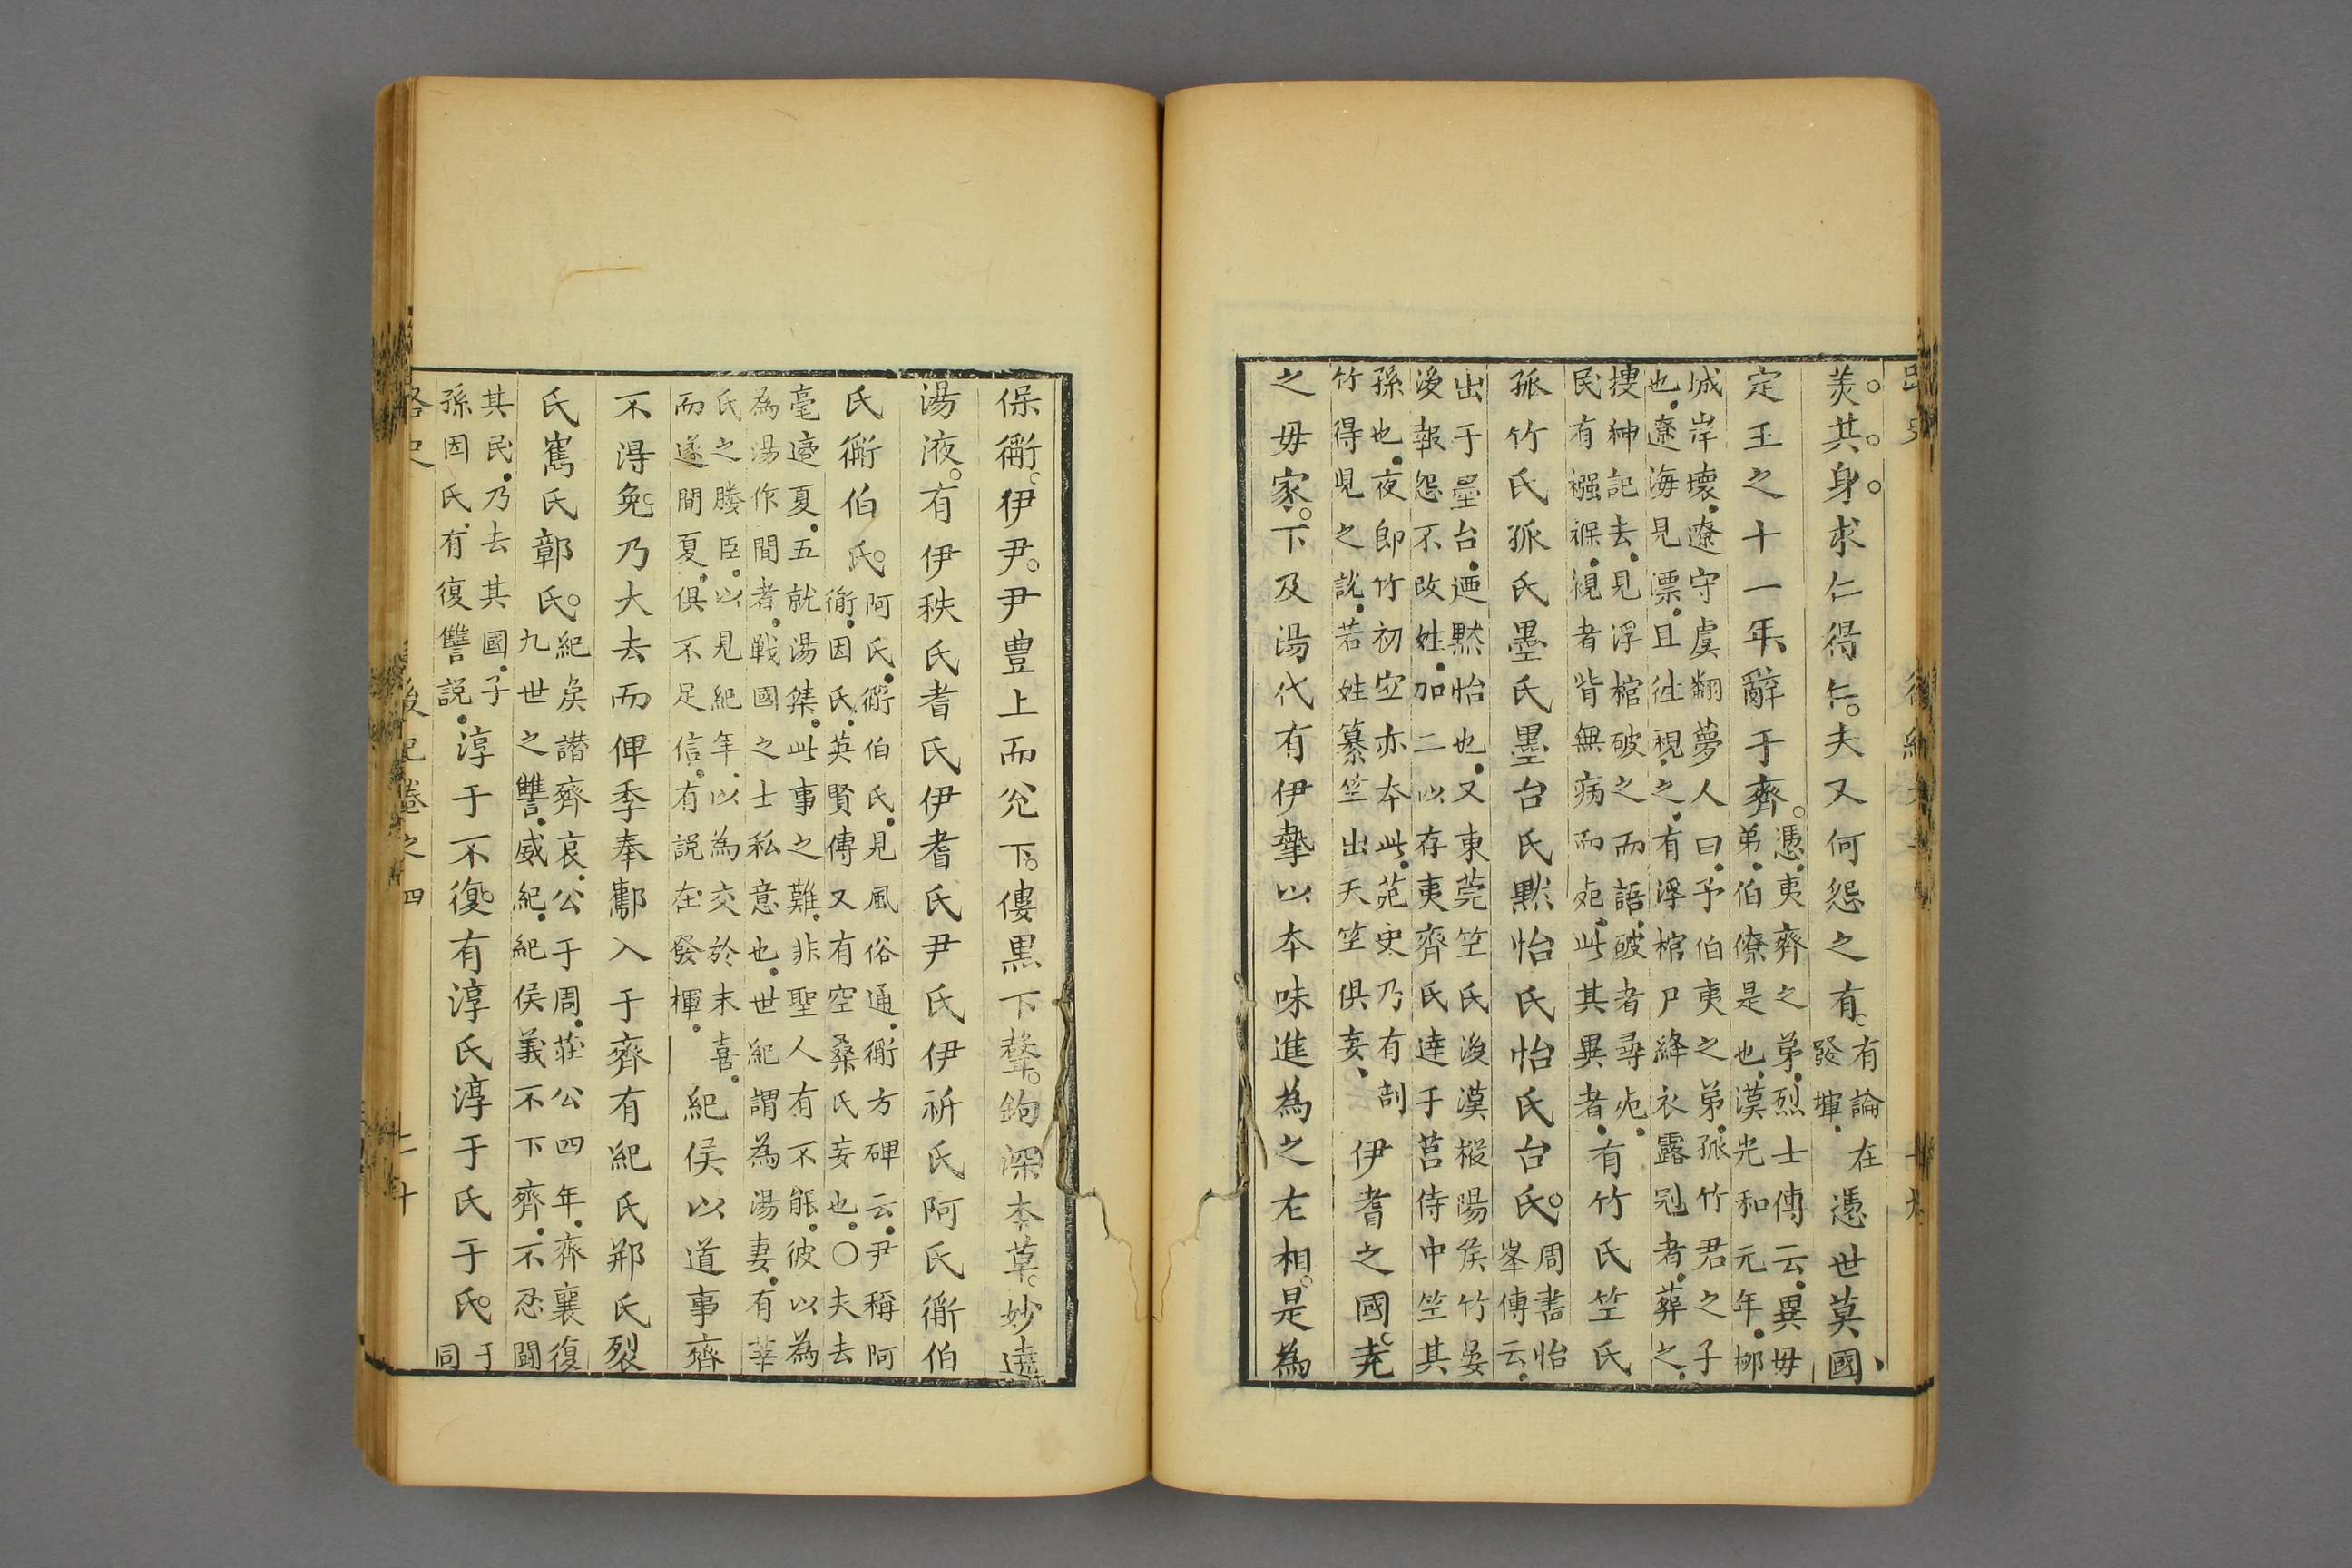 羙其身求仁得仁夫又何怨之有有論在發揮憑世莫國
定王之十一年辭于齊憑夷齊之弟烈士傳云異毋弟伯僚是也漢光和元年柳
城岸壞遼守虞翻夢人曰予伯夷之弟孤竹君之子也遼海見漂且徃視之有浮棺尸絳衣露冠者葬之
搜神記去見浮棺破之而語破者尋死民有襁褓視者皆無病而死此其異者有竹氏竺氏
孤竹氏孤氏墨氏墨台氏默怡氏怡氏台氏周書怡峯傳云
出于墨台迺默怡也又東莞竺氏後漢樅陽侯竹晏後報怨不改姓加二以存夷齊氏達于莒侍中竺其
孫也夜郎竹初空亦本此范史乃有剖竹得見之說若姓纂竺出天竺俱妄伊耆之國尭
之毋家下及湯代有伊摰以本味進為之右相是為
保衡伊尹尹豊上而兊下僂黒下聲鉤深本草妙遠
湯液有伊秩氏耆氏伊耆氏尹氏伊祈氏阿氏衡伯
氏衡伯氏阿氏衡伯氏見風俗通衡方碑云尹稱阿衡因氏英賢傳又有空桑氏妄也〇夫去
亳適夏五就湯桀此事之難非聖人有不能彼以為為湯作間者戰國之士私意也世紀謂為湯妻有莘
氏之媵臣以見紀年以為交於末喜而遂間夏俱不足信有說在發揮紀侯以道事齊
不得免乃大去而俾季奉酅入于齊有紀氏郱氏裂
氏寯氏鄣氏紀矦譖齊哀公于周莊公四年齊襄復九世之讐威紀紀侯義不下齊不忍闘
其民乃去其國子孫因氏有復讐説淳于不復有淳氏淳于氏于氏于同
路史 後紀卷之四 二十